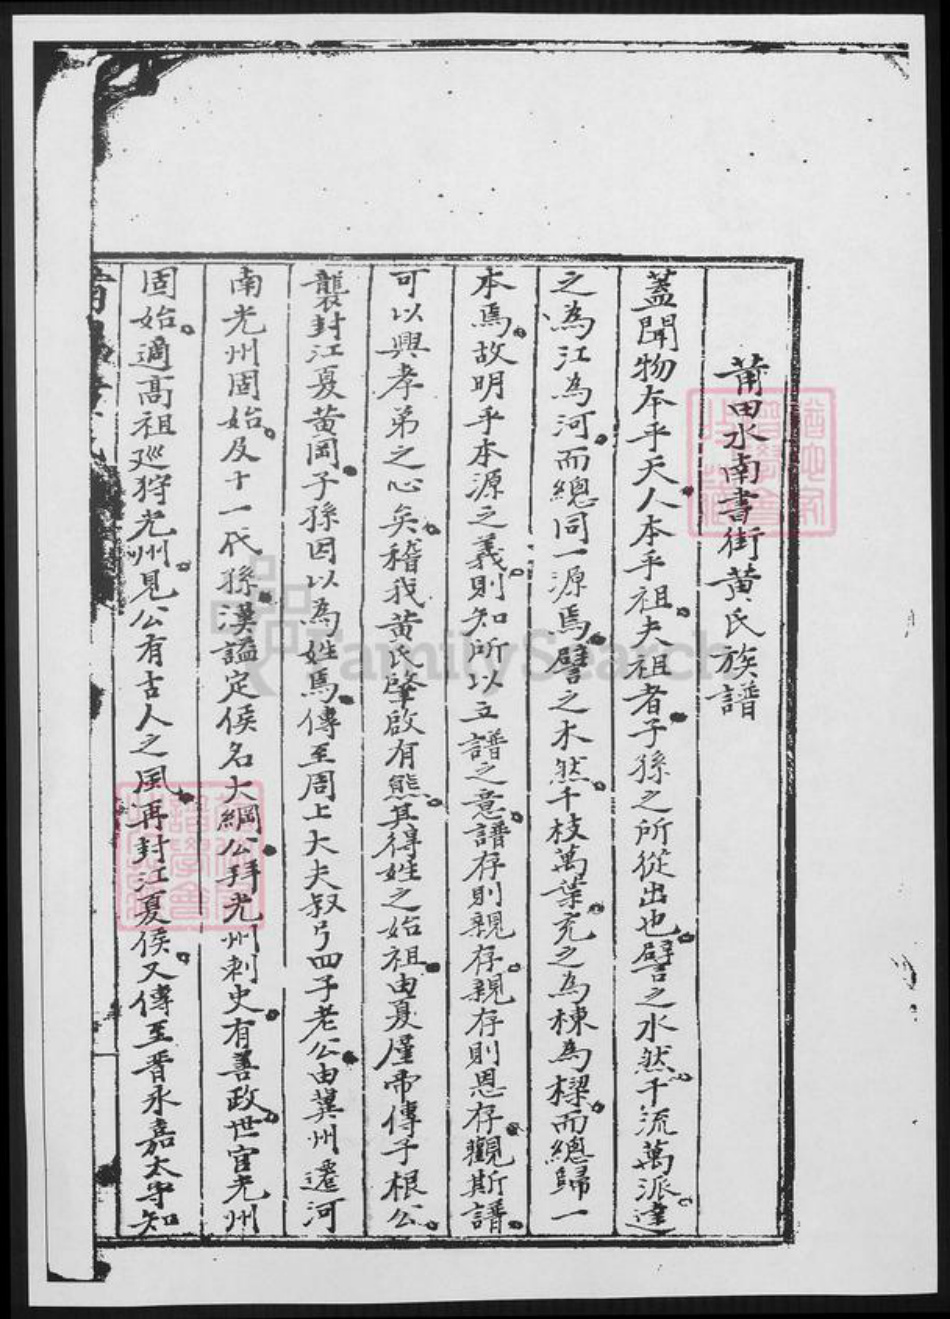 莆田水南書街黃氏族譜
蓋聞物本乎天人本乎祖夫祖者子孫之所從出也譬之水然千流萬派達
之為江為河而總同一源焉譬之木然千枝萬葉充之為棟為樑而總歸一
本焉故明乎本源之義則知所以立譜之意譜存則親存親存則恩存觀斯譜
可以興孝弟之心矣稽我黃氏肇啟有熊其得姓之始祖由夏廑帝傳子根公
襲封江夏黃岡子孫因以為姓焉傳至周上大夫叔弓四子老公由冀州遷河
南光州固始及十一代孫漢謚定侯名大綱公拜光州刺史有善政世官光州
固始適高祖廵狩光州見公有古人之風再封江夏侯又傳至晋永嘉太守知
FamilySearch